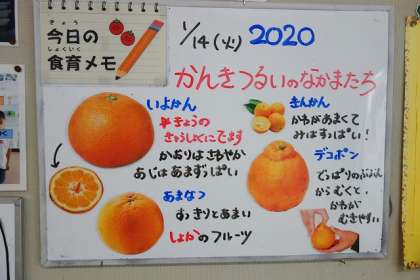 きょう
今日の
しょくいく
食育メモ
1/14(火) 2020
かんきつるいのなかまたち
いよかん
*きょうの
きゅうしょくにでます
かおりはさわやか
あじはあまずっぱい
きんかん
かわがあまくて
みはすっぱい!
あまなつ
すっきりとあまい
しょかのフルーツ
デコポン
でっぱりのぶぶん
からむくと、
かわが
むきやすい